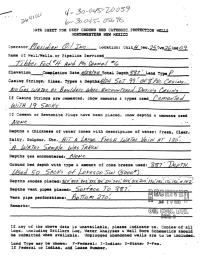 30-045-20059
DATA SHEET FOR DEEP GROUND BED CATHODIC PROTECTION WELLS
NORTHWESTERN NEW MEXICO
Operator Meridian Oil Inc. Location: Unit H Sec. 25 Twp 26 Rng 09
Name of Well/Wells or Pipeline Serviced
Elevation Completion Date Total Depth 387' Land Type F
Casing Strings, Sizes, Types & Depths Set 99' Of 8" PVC Casing.
No Gas, Water, or Boulders Were Encountered During Casing.
If Casing Strings are cemented, show amounts & types used Cemented
With 19 Sacks.
If Cement or Bentonite Plugs have been placed, show depths & amounts used
None
Depths & thickness of water zones with description of water: Fresh, Clear,
Salty, Sulphur, Etc. Hit A Large Fresh Water Vein At 120'.
A Water Sample Was Taken.
Depths gas encountered: None
Ground bed depth with type & amount of coke breeze used: 387' Depth
Used 50 Sacks Of
Depths anodes placed:
Depths vent pipes placed: Surface To 387'.
Vent pipe perforations: Bottom 270'.
Remarks:
If any of the above data is unavailable, please indicate so. Copies of all
logs, including Drillers Log, Water Analyses & Well Bore Schematics should
be submitted when available. Unplugged abandoned wells are to be included.
Land Type may be shown: F-Federal; I-Indian; S-State; P-Fee.
If Federal or Indian, add Lease Number.